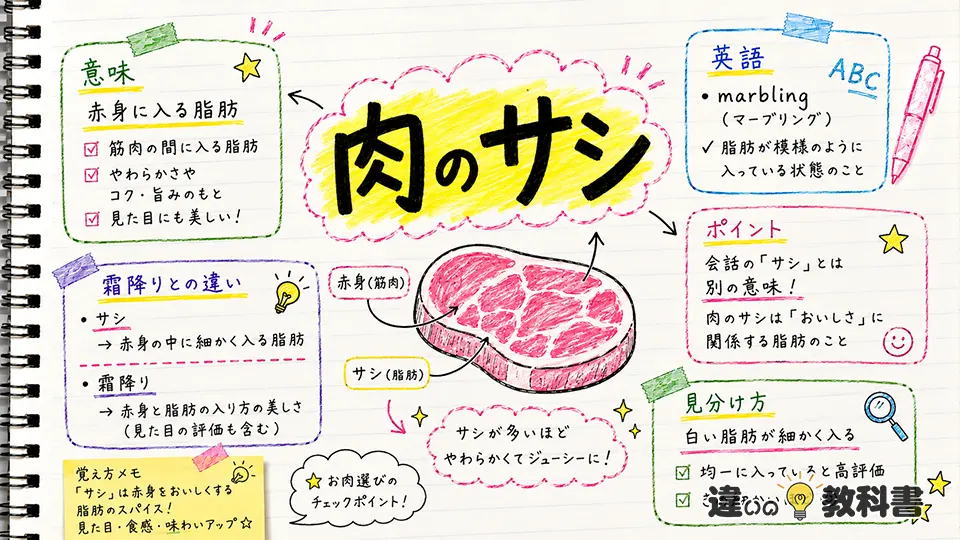 肉のサシ
意味
赤身に入る脂肪
筋肉の間に入る脂肪
やわらかさや
コク・旨みのもと
見た目にも美しい!
霜降りとの違い
• サシ
→ 赤身の中に細かく入る脂肪
• 霜降り
→ 赤身と脂肪の入り方の美しさ
(見た目の評価も含む)
覚え方メモ
「サシ」は赤身をおいしくする
脂肪のスパイス!
見た目・食感・味わいアップ☆
赤身(筋肉)
サシ(脂肪)
サシが多いほど
やわらかくてジューシーに!
お肉選びの
チェックポイント!
英語
ABC
• marbling
(マーブリング)
✓ 脂肪が模様のように
入っている状態のこと
ポイント
会話の「サシ」とは
別の意味!
肉のサシは「おいしさ」に
関係する脂肪のこと
見分け方
白い脂肪が細かく入る
均一に入っていると高評価
違いの教科書